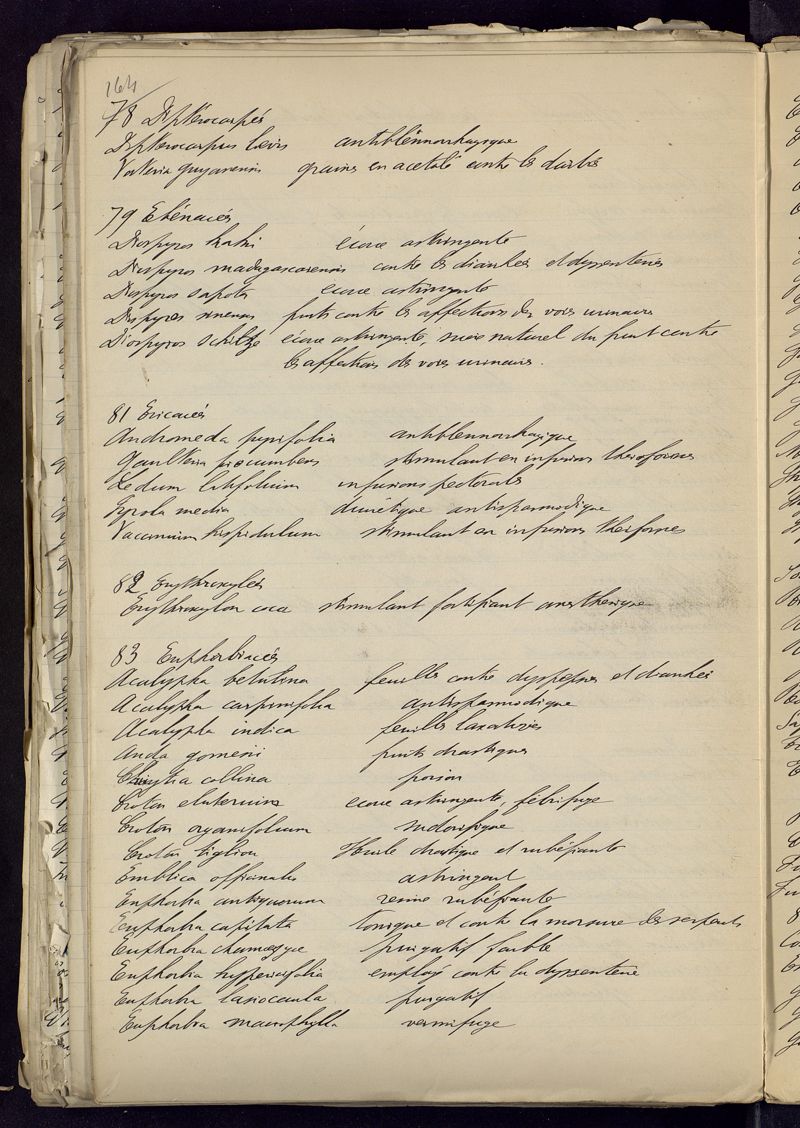 164
78 Diptérocarpés
Dipterocarpus lævis antiblénnorrhagique
Vateria guyanensis graines en acétolé contre les dartres
79 Ebénacés
Diospyros kaki écorce astringente
Diospyros madagascarensis contre les diarrhées et dyssenteries
Diospyros sapota écorce astringente
Diospyros sinensis fruits contre les affections des voies urinaires
Diospyros écorce astringente, sucre naturel du fruit contre
les affections des voies urinaires.
81 Ericacés
Andromeda pyrifolia antiblennorrhagique
Gaultheria procumbens stimulant en infusions théiformes
Ledum latifolium infusions pectorales
Pyrola media diurétique antispasmodique
Vaccinium hispidulum stimulant en infusions theiformes
82 Erythroxylés
Erythroxylon coca stimulant fortifiant anesthésique
83 Euphorbiacés
Acalypha betulina feuilles contre dyspepsies et diarrhées
Acalypha carpinifolia antispasmodique
Acalypha indica feuilles laxatives
Anda gomesii fruits drastiques
Cluytia collina poison
Croton eluterium écorce astringente, fébrifuge
Croton organifolium sudorifique
Croton tiglion Huile drastique et rubéfiante
Emblica officinalis astringent
Euphorbia antiquorum resine rubéfiante
Euphorbia capitata tonique et contre la morsure des serpents
Euphorbia chamæsyce purgatif faible
Euphorbia hypericifolia employé contre la dyssenterie
Euphorbia lasiocaula purgatif
Euphorbia macrophylla vermifuge